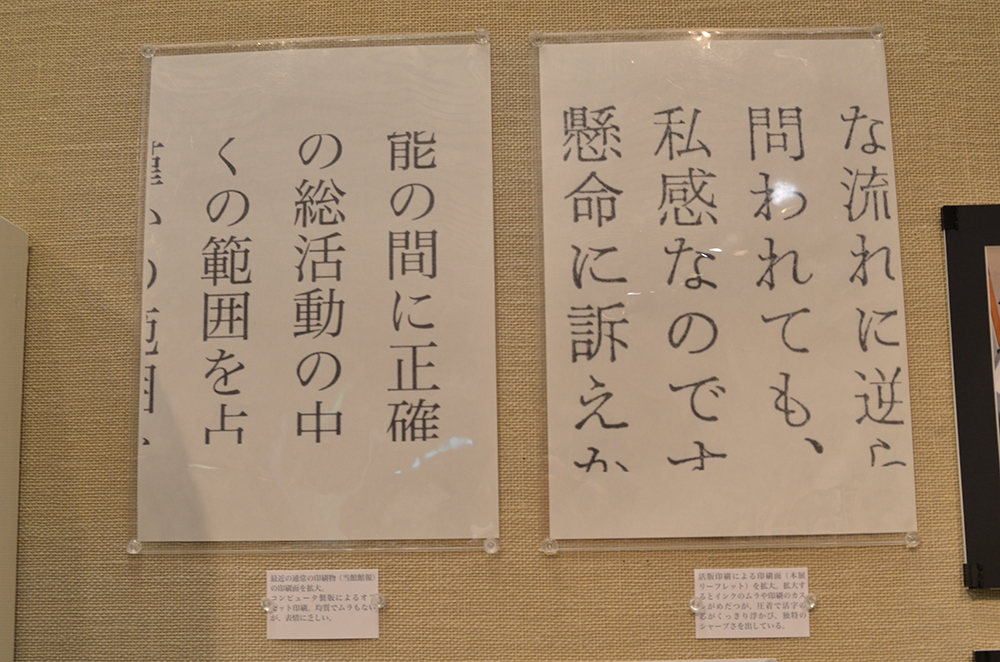 な流れに逆ら
問われても、
私感なのです
懸命に訴えか
能の間に正確
の総活動の中
くの範囲を占
活版印刷による印刷面（本展
リーフレット）を拡大。拡大す
るとインクのムラや印刷のカス
がめだつが、圧着で活字の
芯がくっきり浮かび、独特の
シャープさを出している。
最近の通常の印刷物（当館館報）
の印刷面を拡大。
コンピュータ製版によるオフ
セット印刷。均質でムラもない
が、表情に乏しい。